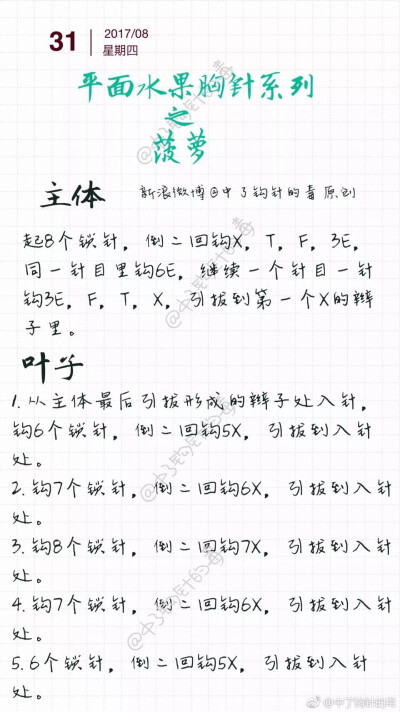 31
2017/08
星期四
平面水果胸针系列
之
菠萝
主体 新浪微博@中了钩针的毒原创
起8个锁针，倒二回钩X，T，F，3E，
同一针目里钩6E，继续一个针目一针
钩3E，F，T，X，引拔到第一个X的辫
子里。
叶子
1.从主体最后引拔形成的辫子处入针，
钩6个锁针，倒二回钩5X，引拔到入针
处。
2.钩7个锁针，倒二回钩6X，引拔到入针
处。
3.钩8个锁针，倒二回钩7X，引拔到入针
处。
4.钩7个锁针，倒二回钩6X，引拔到入针
处。
5.6个锁针，倒二回钩5X，引拔到入针
处。
@中了钩针的毒
@中了钩针的毒
@中了钩针的毒
@中了钩针的毒
@中了钩针的毒